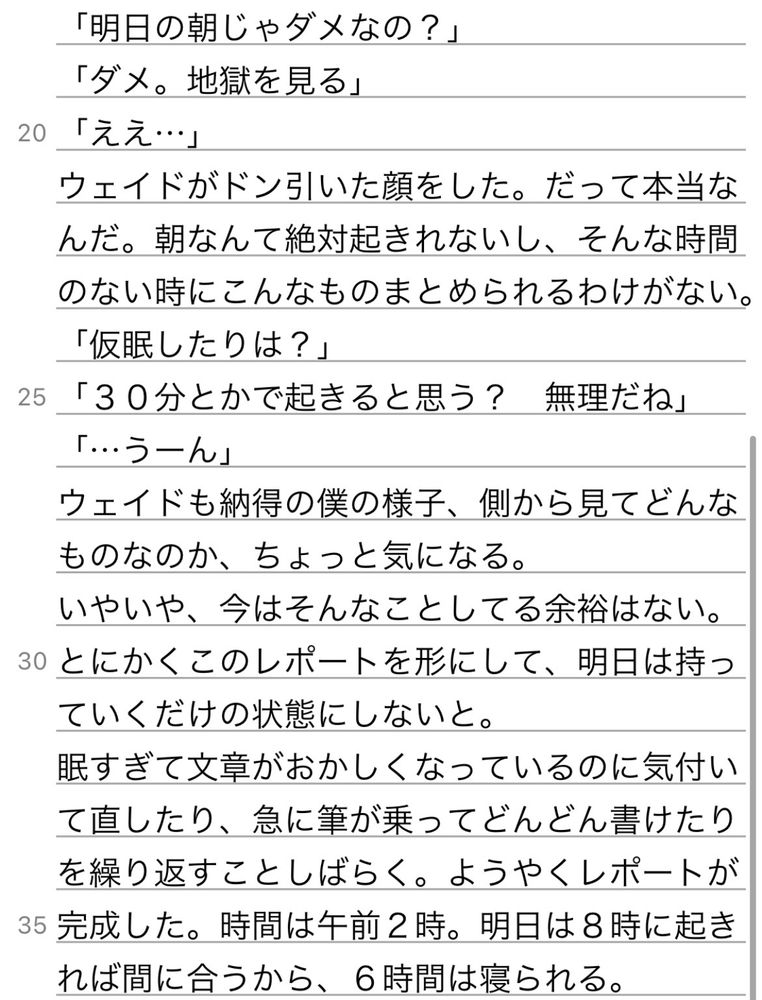 「明日の朝じゃダメなの？」
「ダメ。地獄を見る」
20 「ええ…」
ウェイドがドン引いた顔をした。だって本当な
んだ。朝なんて絶対起きれないし、そんな時間
のない時にこんなものまとめられるわけがない。
「仮眠したりは？」
25 「３０分とかで起きると思う？　無理だね」
「…うーん」
ウェイドも納得の僕の様子、側から見てどんな
ものなのか、ちょっと気になる。
いやいや、今はそんなことしてる余裕はない。
30 とにかくこのレポートを形にして、明日は持っ
ていくだけの状態にしないと。
眠すぎて文章がおかしくなっているのに気付い
て直したり、急に筆が乗ってどんどん書けたり
を繰り返すことしばらく。ようやくレポートが
35 完成した。時間は午前２時。明日は８時に起き
れば間に合うから、６時間は寝られる。